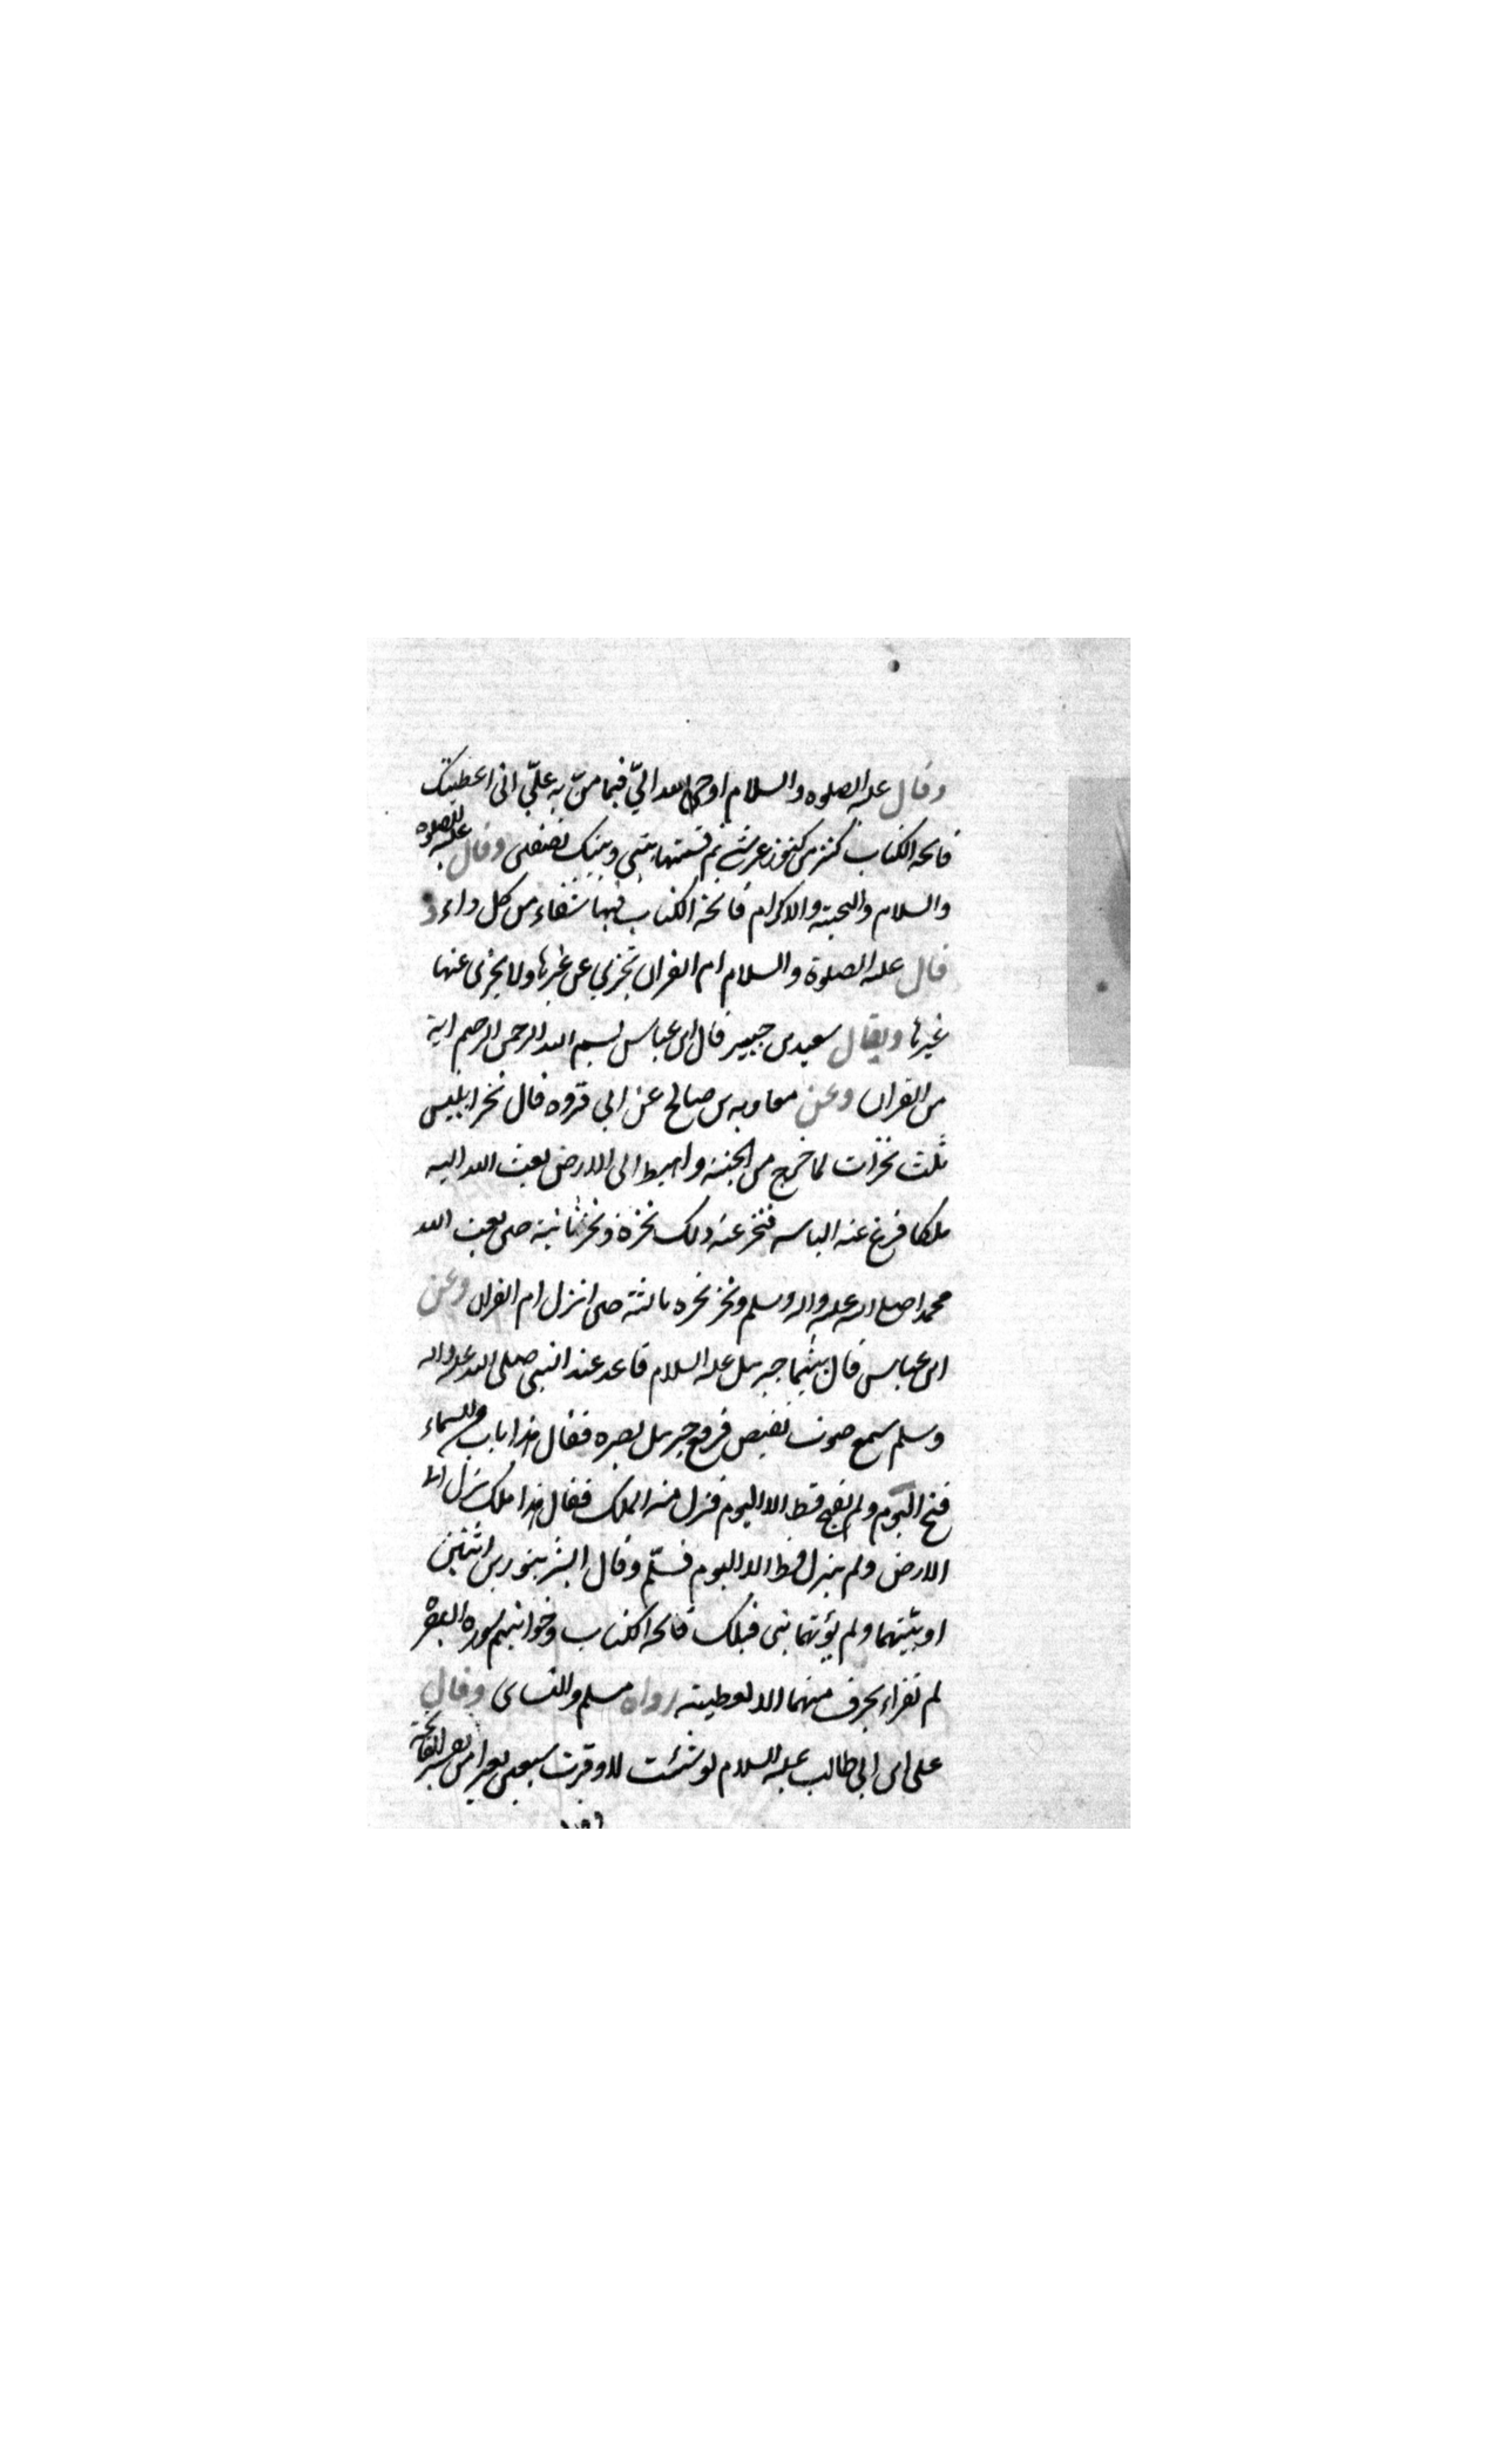 وقال عليه الصلوه والسلام اوحى الله الىّ فيما منّ به علىّ انى اعطيتك
فاتحه الكتاب كنز من كنوز عرشى ثم قسمتها بينى وبينك نصفين وقال عليه الصلوه
والسلام والتحية والاكرام فاتحة الكتاب فيها شفاء من كل داء و
قال عليه الصلوة والسلام ام القران تجزى عن غيرها ولا يجزى عنها
غيرها ويقال سعيد بن جبير قال ابن عباس بسم الله الرحمن الرحيم اية
من القران وعن معاويه بن صالح عن ابى قروه قال نخر ابليس
ثلث نخرات لما خرج من الجنة واهبط الى الارض بعث الله اليه
ملكا فنخر عند ذلك نخرة ونخر ثانية حين بعث الله
محمدا صلى الله عليه واله وسلم ونخر نخره ثالثة حين انزل ام القران وعن
ابن عباس قال بينما جبريل عليه السلام قاعد عند النبى صلى الله عليه واله
وسلم سمع صوت نقيض فرفع جبريل بصره فقال هذا باب من السماء
فتح اليوم ولم يفتح قط الا اليوم فنزل منه الملك فقال هذا ملك نزل الى
الارض ولم ينزل قط الا اليوم فسلّم وقال ابشر بنورين اثنين
اوتيتهما ولم يؤتهما نبى قبلك فاتحه الكتاب وخواتيم سوره البقره
لم تقراء بحرف منهما الا اعطيته رواه مسلم والنسائى وقال
على ابن ابى طالب عليه السلام لو شئت لاوقرت سبعين بعيرا من تفسير الفاتحة